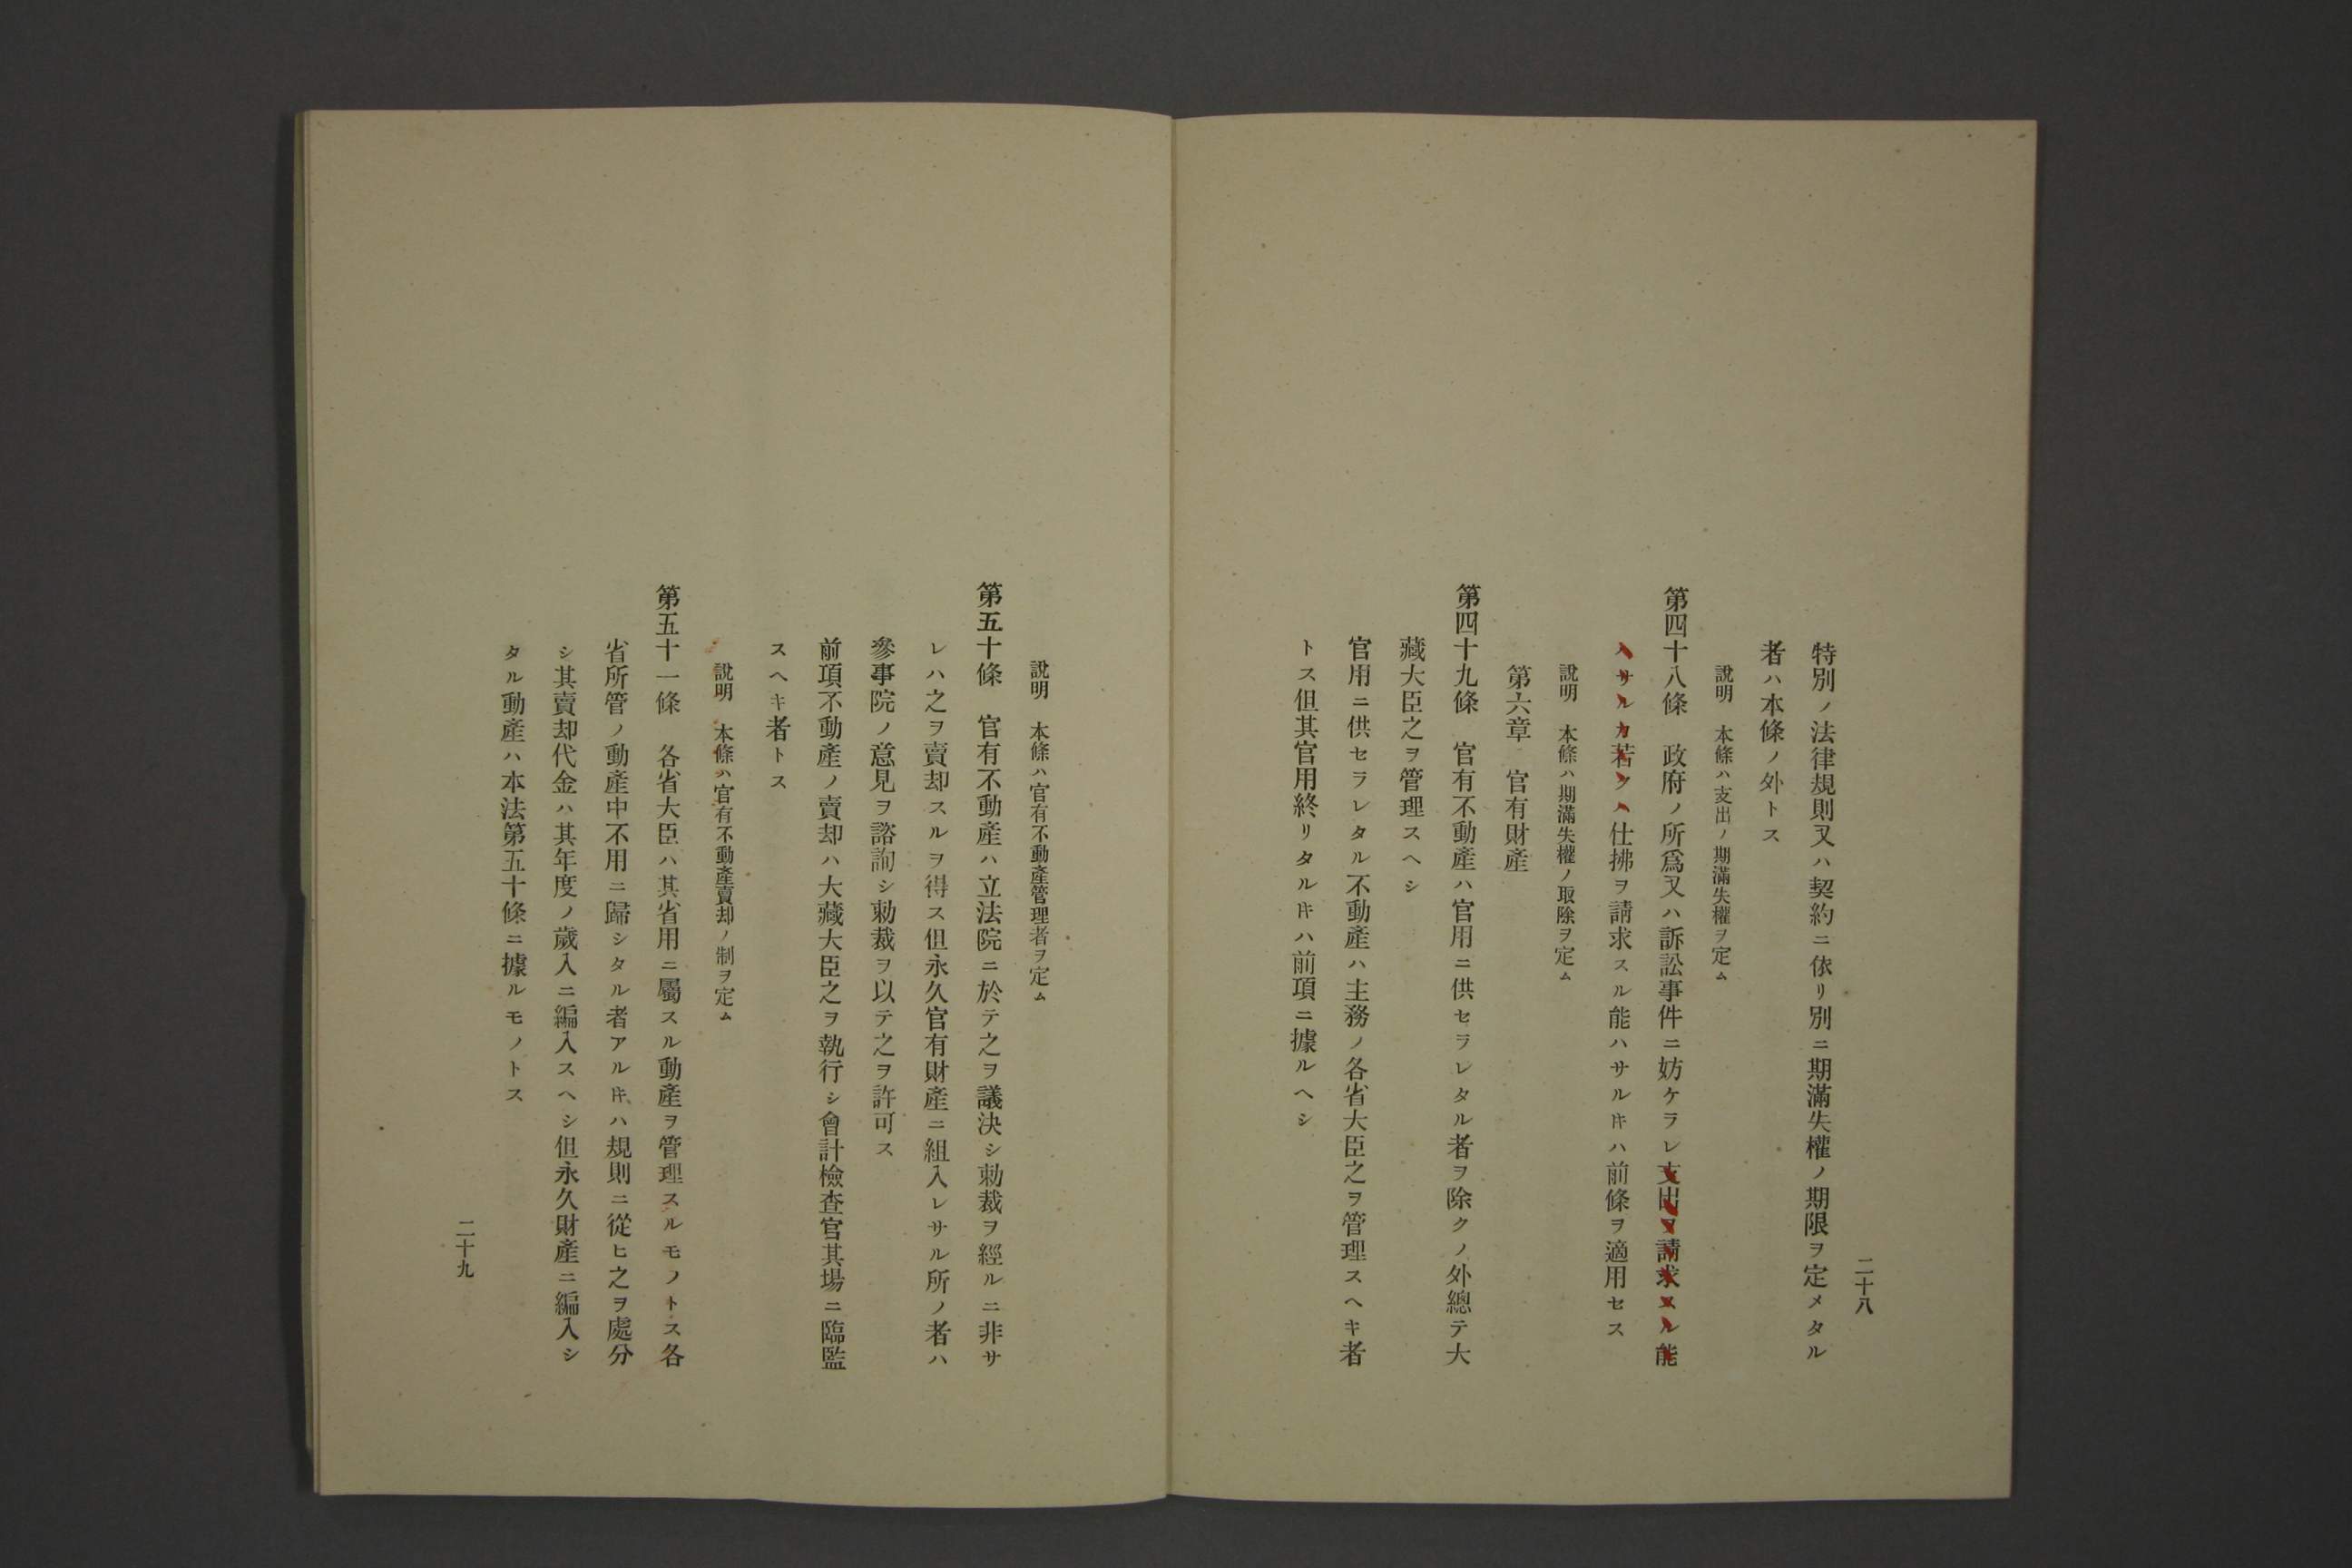 二十八
特別ノ法律規則又ハ契約ニ依リ別ニ期滿失權ノ期限ヲ定メタル
者ハ本條ノ外トス
說明　本條ハ支出ノ期滿失權ヲ定ム
第四十八條　政府ノ所爲又ハ訴訟事件ニ妨ケラレ支出ヲ請求スル能
ハサルカ若クハ仕拂ヲ請求スル能ハサル𪜈ハ前條ヲ適用セス
說明　本條ハ期滿失權ノ取除ヲ定ム
第六章　官有財產
第四十九條　官有不動產ハ官用ニ供セラレタル者ヲ除クノ外總テ大
藏大臣之ヲ管理スヘシ
官用ニ供セラレタル不動產ハ主務ノ各省大臣之ヲ管理スヘキ者
トス但其官用終リタル𪜈ハ前項ニ據ルヘシ
說明　本條ハ官有不動產管理者ヲ定ム
第五十條　官有不動產ハ立法院ニ於テ之ヲ議決シ勅裁ヲ經ルニ非サ
レハ之ヲ賣却スルヲ得ス但永久官有財產ニ組入レサル所ノ者ハ
參事院ノ意見ヲ諮詢シ勅裁ヲ以テ之ヲ許可ス
前項不動產ノ賣却ハ大藏大臣之ヲ執行シ會計檢查官其場ニ臨監
スヘキ者トス
說明　本條ハ官有不動產賣却ノ制ヲ定ム
第五十一條　各省大臣ハ其省用ニ屬スル動產ヲ管理スルモノトス各
省所管ノ動產中不用ニ歸シタル者アル𪜈ハ規則ニ從ヒ之ヲ處分
シ其賣却代金ハ其年度ノ歲入ニ編入スヘシ但永久財產ニ編入シ
タル動產ハ本法第五十條ニ據ルモノトス
二十九